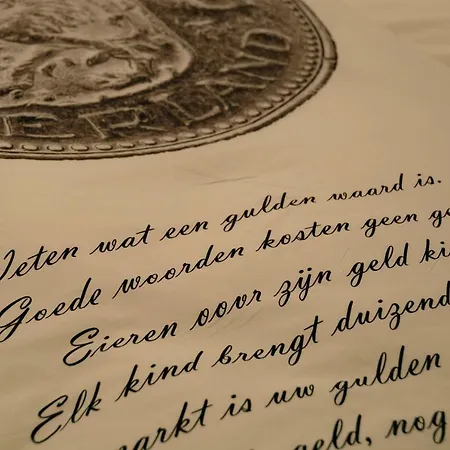 ERLAND
Weten wat een gulden waard is.
Goede woorden kosten geen
Eieren voor zijn geld
Elk kind brengt duizend
markt is uw gulden
geld, nog